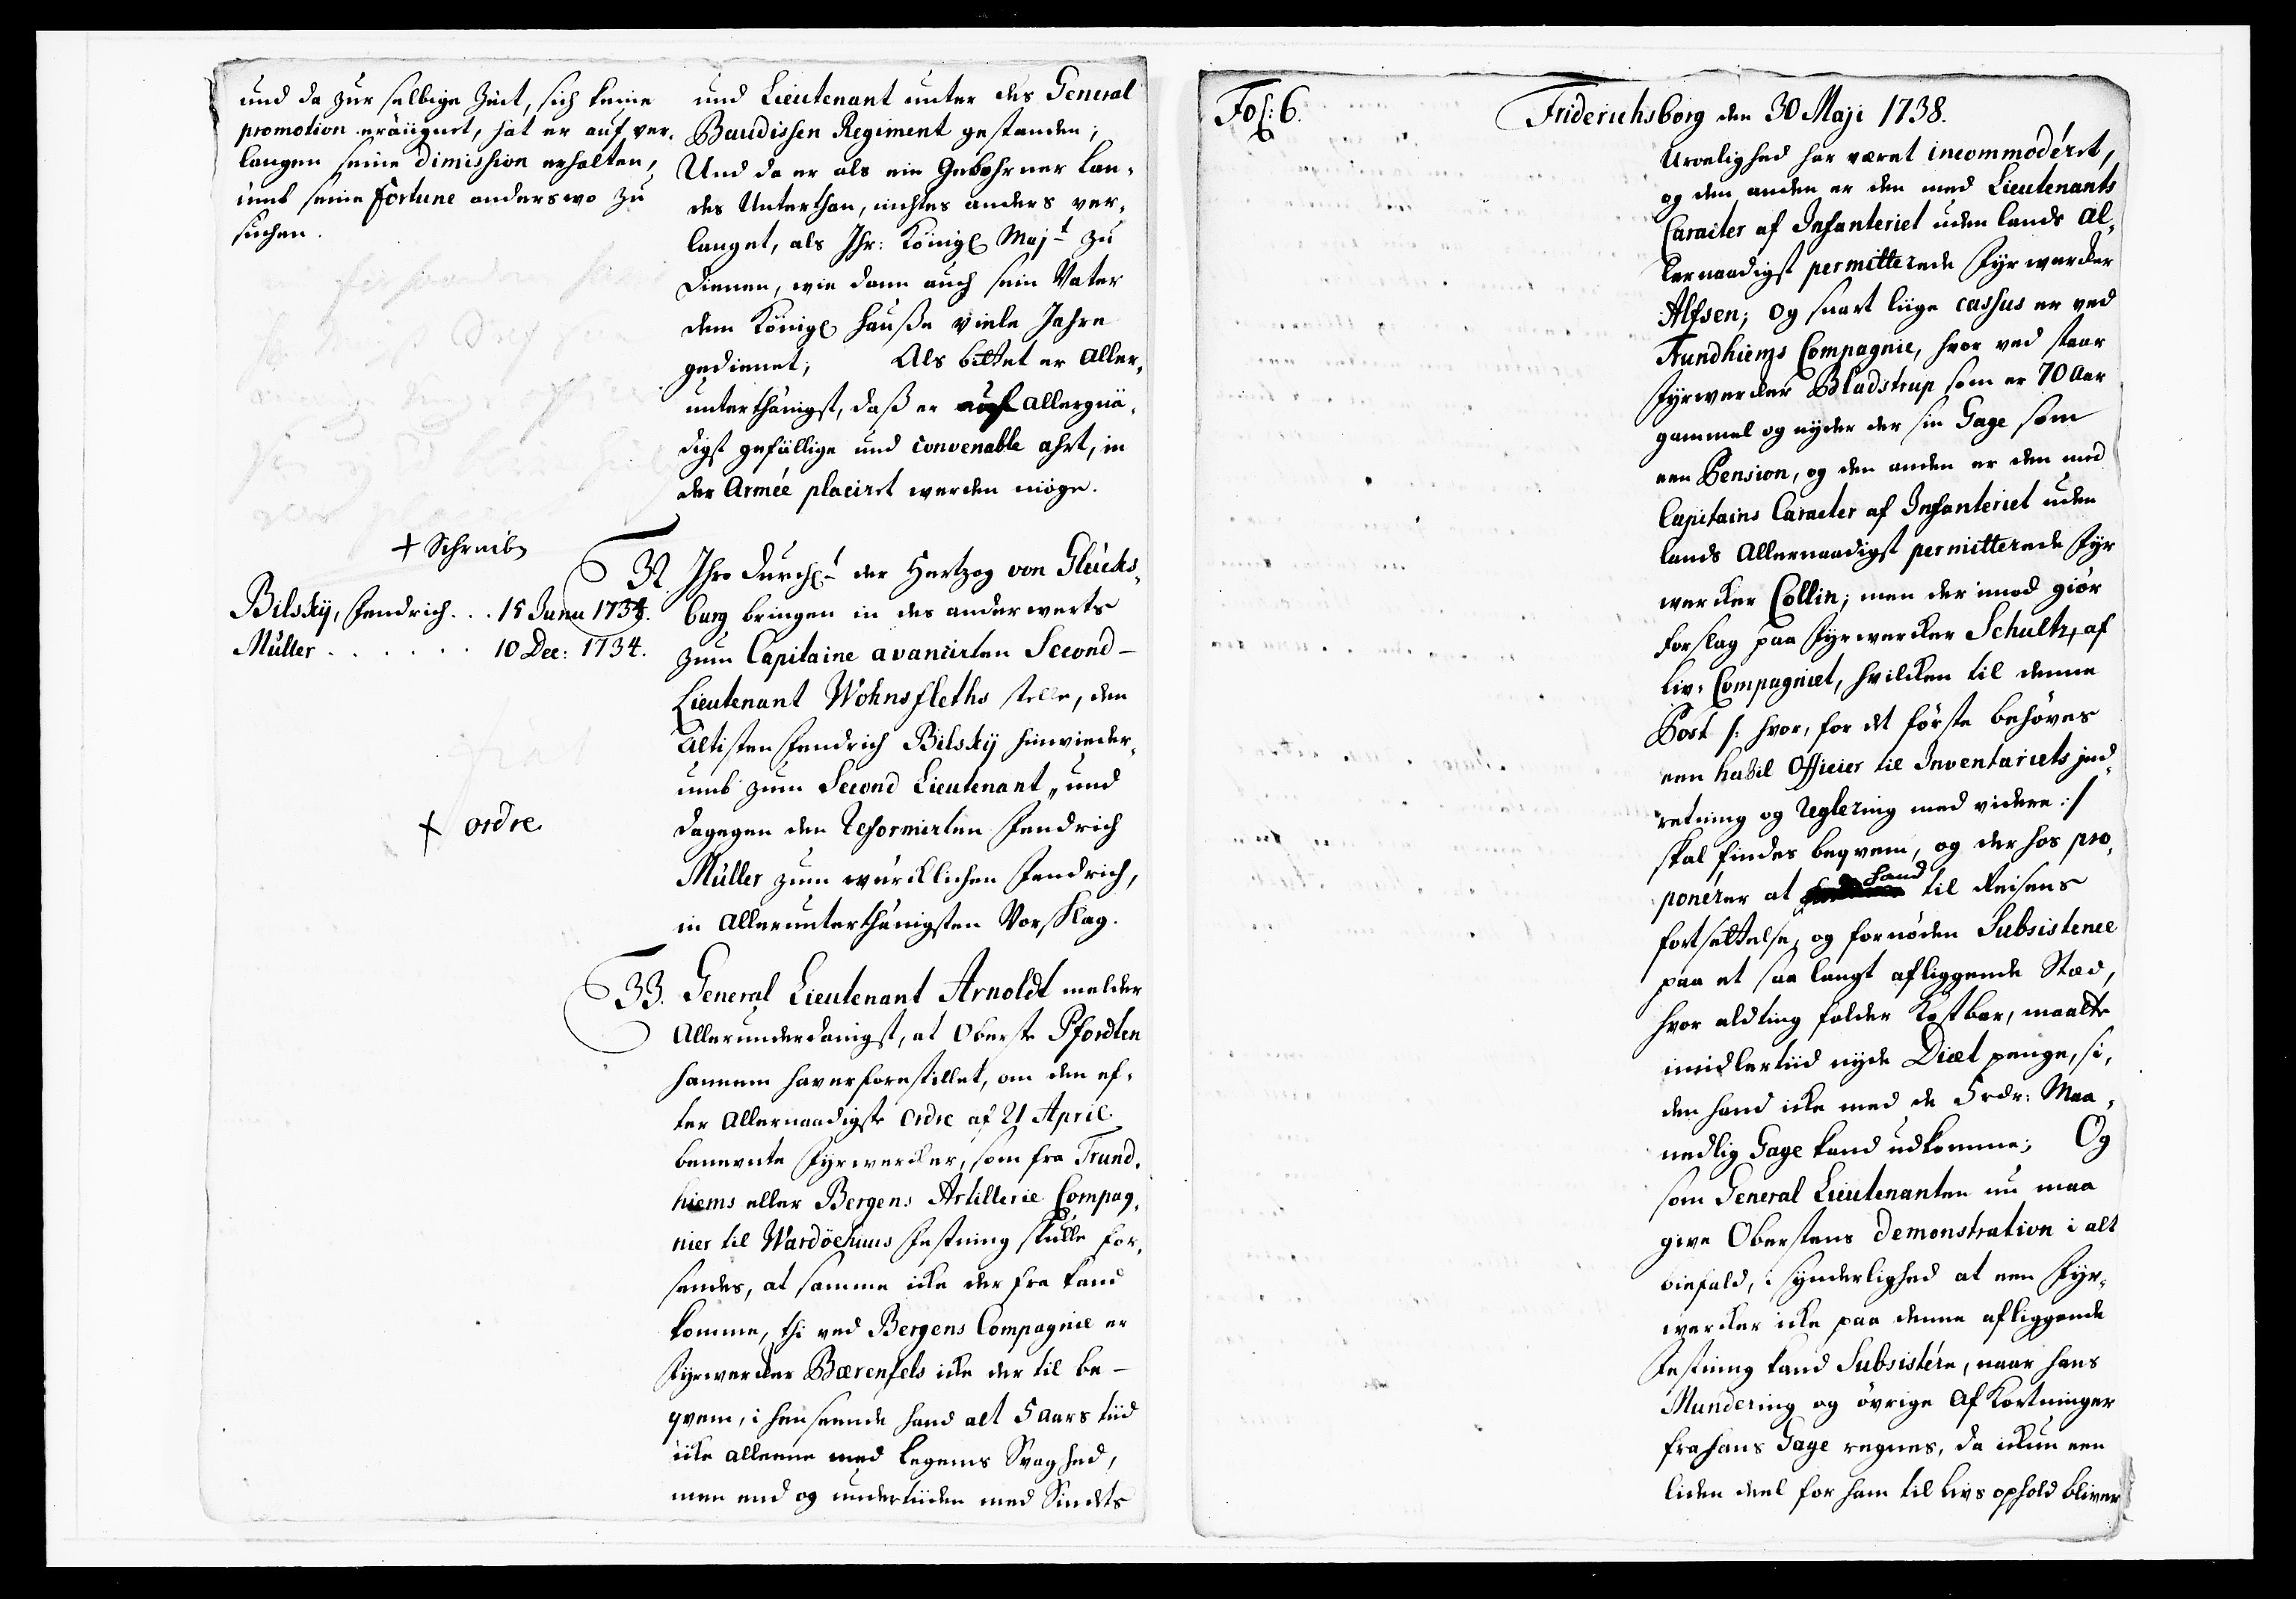 und da zur selbige Zeit, sich keine
promotion eräügnet, hat er auf ver-
langen seine dimission erhalten,
umb seine fortune anderswo zu
suchen.
und Lieutenant unter des General
Baudissen Regiment gestanden;
Und da er als ein Gebohrner lan-
des Unterthan, nichtes anders ver-
langet, als Ihr: Königl Majt zu
dienen, wie dann auch sein Vater
dem Königl Hauße viele Jahre
gedienet; Als bittet er Aller-
unterthänigst, daß er auf Allergnä-
digst gefällige und convenable ahrt, in
der Armée placiret werden möge.
+ Schreib
Bilskÿ, Fendrich . . . 15 Junu 1734.
Müller . . . . . . 10 Dec: 1734.
32 Ihro Durchl der Hertzog von Glücks-
burg bringen in des anderwerts
zum Capitaine avancirten Second-
Lieutenant Wohnsfleths stelle, den
Eltisten Fendrich Bilskÿ hinwieder-
umb zum Second Lieutenant, und
dagegen den Reformirten Fendrich
Müller zum würcklichen Fendrich,
in Allerunterthänigsten Vorschlag.
+ ordre
33. General Lieutenant Arnoldt melder
Allerunderdanigst, at Oberste Pfordten
hannem haver forestillet, om den ef-
ter Allernaadigste Ordre af 21 April
benevnte Fyrwercker, som fra Trund-
hiems eller Bergens Artillerie Compag-
nier til Wardöehuus Festning skulle for-
sendes, at samme icke der fra kand
komme, thi ved Bergens Compagnie er
Fyrwercker Bærenfels icke der til be-
qvem, i henseende hand alt 5 aars tiid
icke alleene med legems Svaghed,
men end og undertiiden med Sindets
Fol: 6.
Friderichsborg den 30 Maji 1738.
Uroelighed har været incommodéret,
og den anden er den med Lieutenants
Caracter af Infanteriet uden lands al-
lernaadigst permitterede Fyrwercker
Alfsen; Og snart liige cassus er ved
Trundhiems Compagnie, hvor ved staar
Fyrwercker Bladstrup som er 70 aar
gammel og nyder der sin Gage som
een Pension, og den anden er den med
Capitains Caracter af Infanteriet uden
lands Allernaadigst permitterede Fyr
wercker Collin; men der imod giör
forslag paa Fyrwercker Schultz, af
Liv-Compagniet, hvilcken til denne
Post /: hvor, for det förste behöves
een habil Officier til Inventariets ind-
retning og Reglering med videre :/
skal findes beqvem, og der hos pro-
ponérer at hand til Reisens
fortsættelse, og fornöden Subsistence
paa et saa langt afliggende Stæd,
hvor alting falder Kostbar, maatte
imidlertiid nyde Diæt penge, si-
den hand icke med de 5 rdr: Maa-
nedlig Gage kand udkomme; Og
som General Lieutenanten nu maa
give Oberstens demonstration i alt
biefald, i synderlighed at een Fyr-
wercker icke paa denne afliggende
Festning kand Subsistére, naar hans
Mundering og övrige Af Kortninger
fra hans Gage regnes, da ickun een
liden deel for ham til Livs ophold bliver